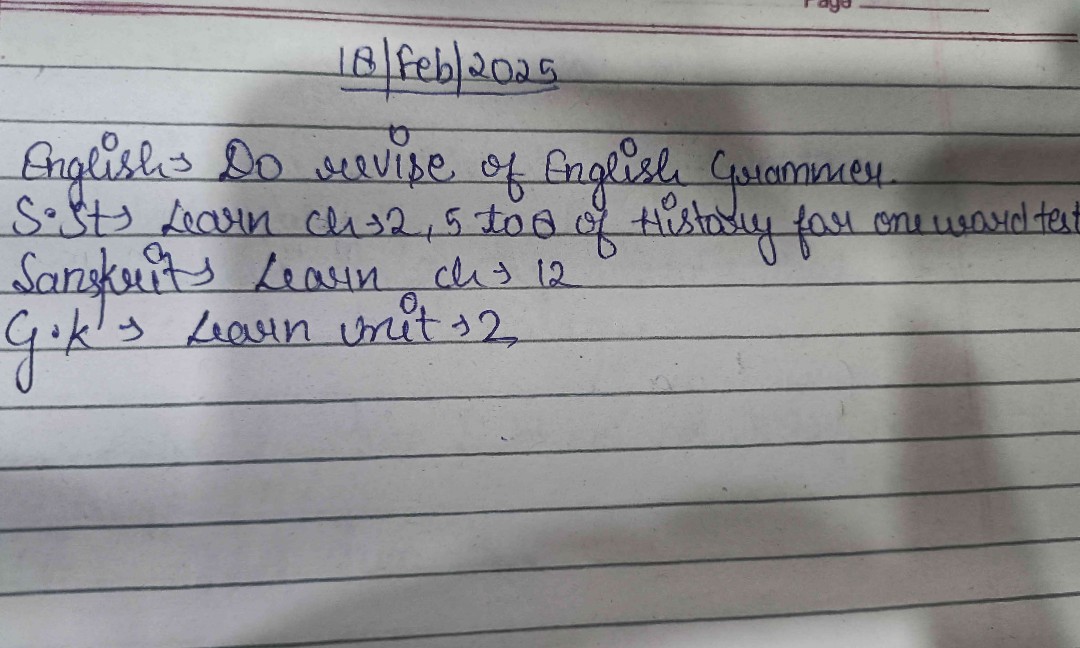 Page
18/Feb/2025
English→ Do revise of English Grammer.
S.St→ Learn ch→2, 5 to 8 of History for one word test
Sanskrit→ Learn ch→ 12
G.k'→ Learn unit→2,